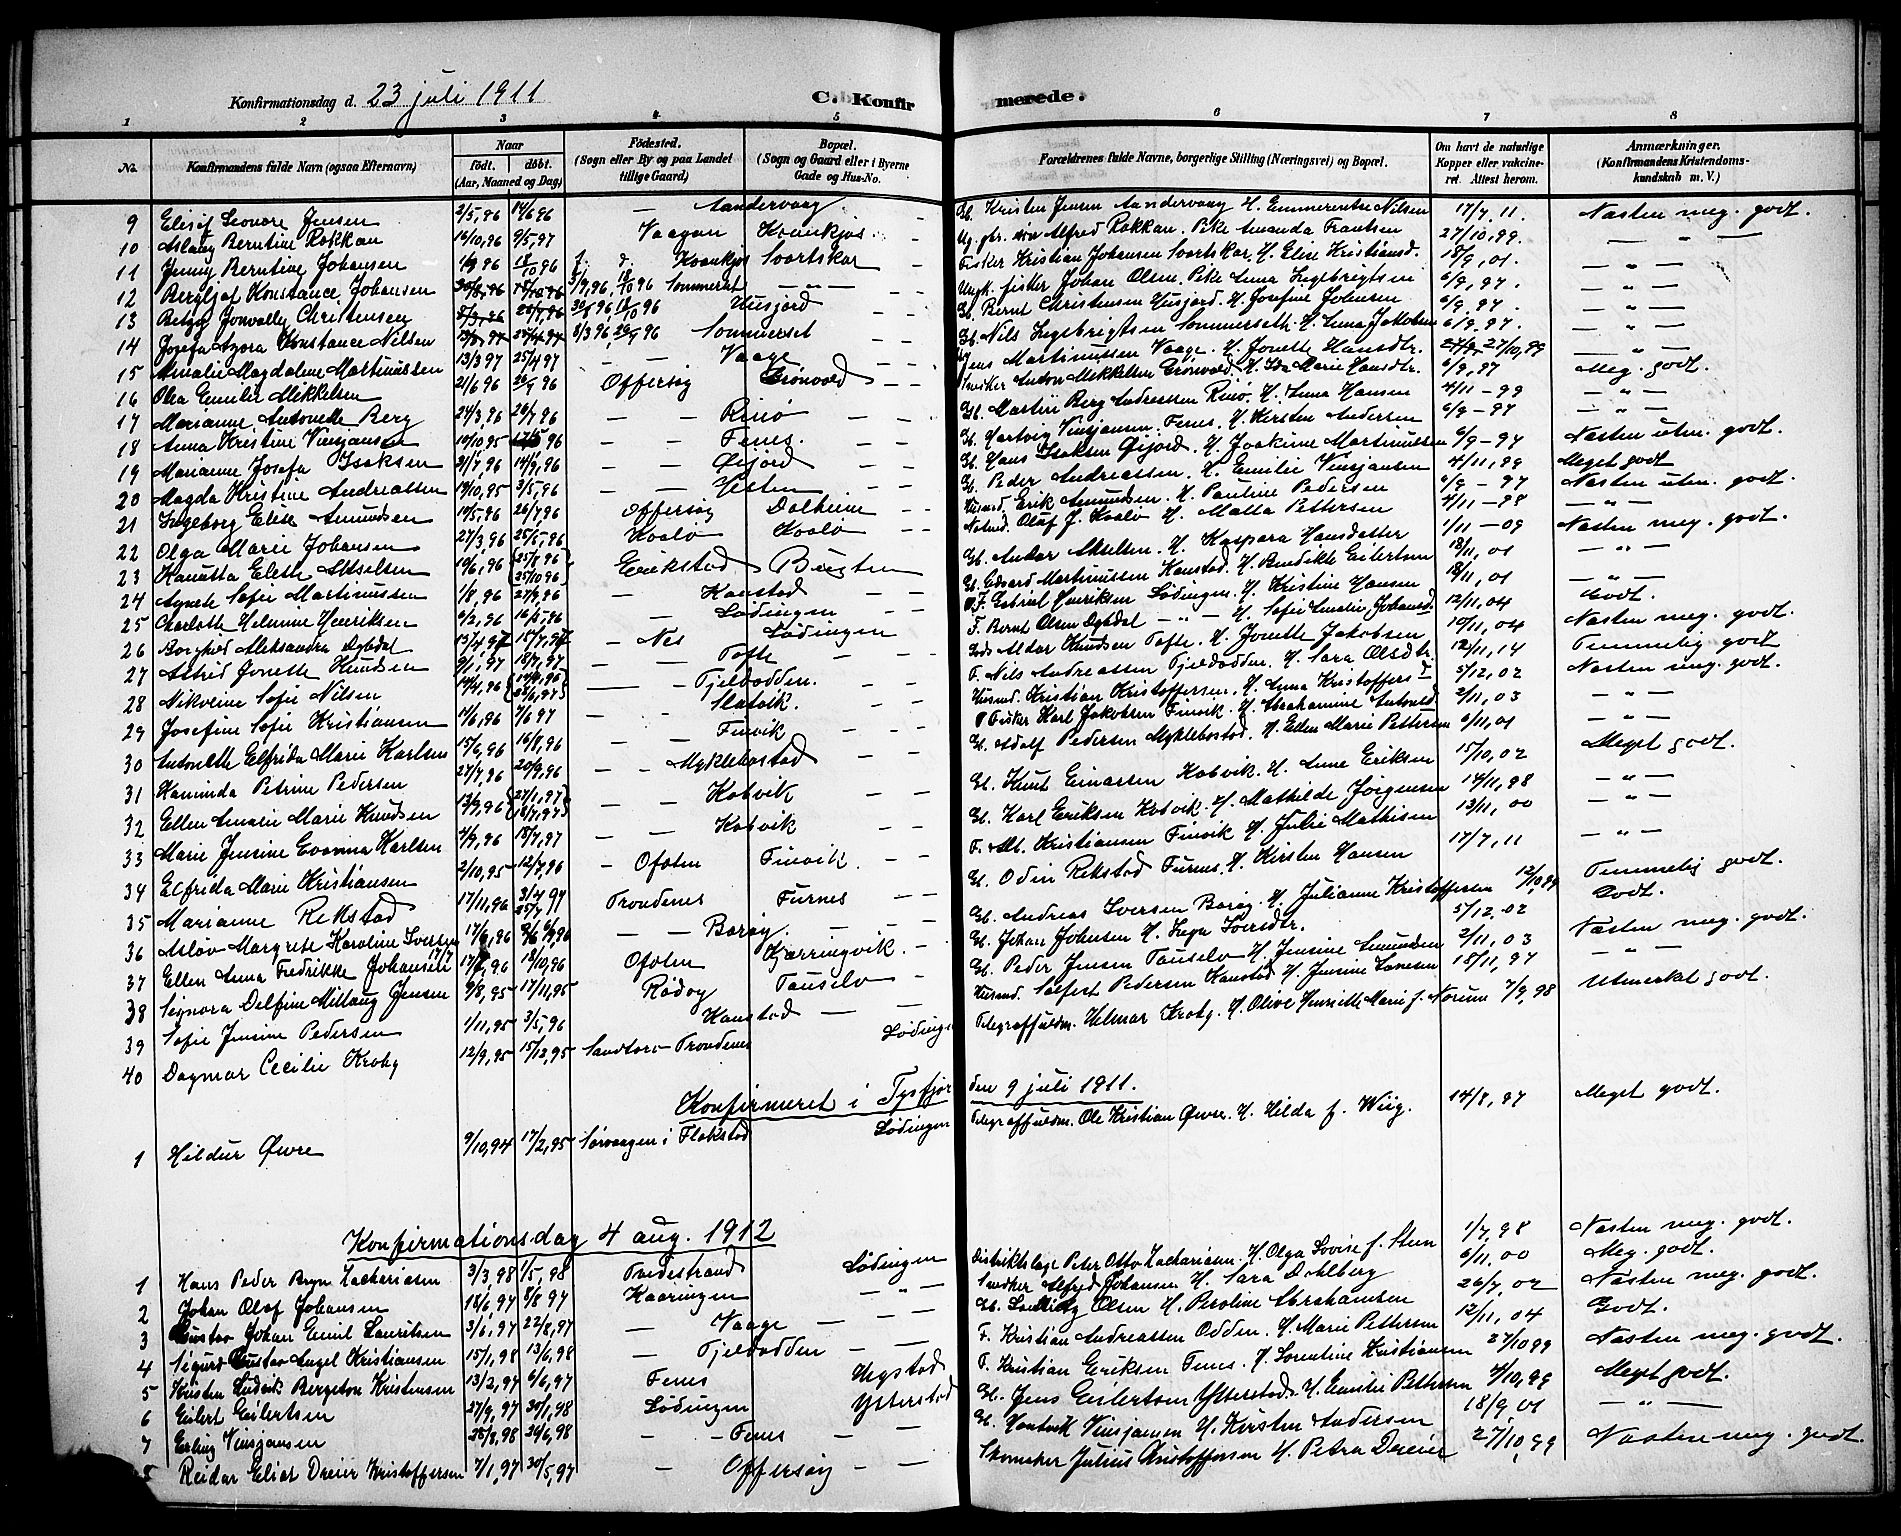 Konfirmationsdag d. 23 juli 1911 C. Konfirmerede.
1 2 3 4 5 6 7 8
No. Konfirmandens fulde Navn (ogsaa Efternavn) Naar født. døbt. (Aar, Maaned og Dag) Fødested. (Sogn eller By og paa Landet tillige Gaard) Bopæl. (Sogn og Gaard eller i Byerne Gade og Hus-No. Forældrenes fulde Navne, borgerlige Stilling (Næringsvei) og Bopæl. Om havt de naturlige Kopper eller vakcineret. Attest herom. Anmærkninger. (Konfirmandens Kristendomskundskab m. V.)
9 Elisif Leonore Jensen 2/5,96 14/6 96 — Sandervaag — Gb. Kristen Jensen Sandervaag H. Emmerentse Nilsen 17/7 11. Næsten meg. godt.
10 Aslaug Berntine Rokkan 16/10,96 9/5,97 — Vaagan Kvankjos — Alfred Rokkan. Pike Amanda Frantsen 27/10,99. — " —
11 Jenny Berntine Johansen Kvankjos Svartskar — Fisker Kristian Johansen Svartskar, H. Elise Kristiansd. 18/9, 01. — " —
12 Bergljot Konstance Johansen 5/9,96, 18/10 96 Sommerset — " — Ungk. fisker Johan Olsen. Pike Anna Ingebrigtsen 6/9,97. — " —
13 Christensen 30/8 96, 11/10 96 Husjord — Gb. Bernt Christensen Husjord. H. Josefine Johnsen 6/9,97. — " —
14 Josefa Azora Konstance Nilsen 8/3 96, Sommerset — Gb. Nils Ingebrigtsen Sommerseth. H. Anna Jakobsen 6/9,97. — " —
15 Amalie Magdalene Martinussen 13/3 97 25/4 97 — — Vaage — Jens Martinussen Vaage. H. Jonette Hansdtr. 27/10,99 — " —
16 Olea Emilie Mikkelsen 21/6 96 Offersøy Grönvold — Anton Mikkelsen Grönvold. H. Ida Marie Hansdtr. 6/9,97 Meg. godt.
17 Marianne Antonette Berg 24/3,96 26/7 96 — — Rinø — — Gb. Martin Berg Andreassen Rinø. H. Anna Hansen 4/11-99 — " —
18 Anna Kristine Vinsjansen 10/10 95 96 — — Fenes. — — Gb. Hartvig Vinsjansen Fenes. H. Kirsten Andersen 6/9-97 — " —
19 Marianne Josefa Isaksen 21/7,96 — — Øijord — — Gb. Hans Isaksen Øijord. H. Joakime Martinussen 6/9-97 Næsten utm. godt.
20 Magda Kristine Andreassen 10/10,95 3/5,96 — — — — Gb. Peder Andreassen. H. Emilie Vinsjansen 4/11,99 Meget godt
21 Ingeborg Elise Amundsen 10/5,96 26/7,96 Offersøy Dalheim — — Husmd. Erik Amundsen. H. Pauline Pedersen 6/9-97 Næsten utm. godt.
22 Olga Marie Johansen 27/3,96 25/5,96 Kvalø Kvalø — — Olaf J. Kvalø H. Matta Pettersen 4/11-98 — " —
23 Hanatta Elette Akselsen 19/6,96 {25/8 96 25/10 96} Erikstad Bugten — — Gb. Anton Akselsen. H. Kaspara Hansdatter 1/11-09 Næsten meg. godt.
24 Agnete Sofie Martinussen 1/8,96 27/9,96 — — Kanstad — — Gb. Edvard Martinussen Kanstad. H. Bendikte Eilertsen 18/11,01 — " —
25 Charlotte Helmine Henriksen 6/2,96 16/5,96 — — Lødingen — — Gabriel Henriksen Lødingen. H. Kristine Hansen 18/11,01 — " —
26 Borghild Aleksandra Dybdal 13/4,97 15/7,97 — Nes Lødingen — — F. Bernt Olsen Dybdal — " — H. Sofie Amalie Johansd. 12/11,04 Godt.
27 Astrid Jonette Knudsen 9/1,97 18/7,97 — — Tofte — — Aldor Knudsen Tofte. H. Jonette Jakobsen 10/11,04 Næsten meg. godt.
28 Nikoline Sofie Nilsen 14/4,96 — Tjeldodden. — — F. Nils Andreassen Tjeldodden. H. Sara Olsdtr. 12/11,14 Temmelig godt
29 Josefine Sofie Kristiansen 4/6,96 7/6 97 — — Slatvik. — — Husmd. Kristian Kristoffersen. H. Anna Kristoffersd. 5/12,02 Næsten meg. godt.
30 Antonette Elfrida Marie Karlsen 15/6,96 16/8,96 — — Finvik — — Fisker Karl Jakobsen Finvik. H. Abrahamine Antonsd. 2/11,03 — " —
31 Haminda Petrine Pedersen 27/7,96 20/9,96 — — Myklebostad — — Gb. Adolf Pedersen Myklebostad. H. Ellen Marie Pettersen 6/11,01 — " —
32 Ellen Amalie Marie Knudsen 13/9,96 {27/1,97 18/7,97} — — Kobvik — — Gb. Knut Einarsen Kobvik. H. Anne Eriksen 15/10,02 Meget godt.
33 Marie Jensine Evanna Karlsen 4/9,96 18/7,97 — — Kobvik — — Gb. Karl Eriksen Kobvik. H. Mathilde Jørgensen 14/11,98 — " —
34 Elfrida Marie Kristiansen 2/10,95 12/7,96 — Ofoten Finvik. — — F. Kristiansen Finvik H. Julie Mathisen 13/11,00 — " —
35 Marianne Rekstad 17/11,96 3/4 97 25/7 Trondenes Furnes — — Gb. Odin Rekstad Furnes. H. Kirsten Hansen 17/7,11 — " —
36 Asløv Margrete Karoline Iversen — — Barøy. — — Gb. Andreas Iversen Barøy. H. Julianne Kristoffersen 12/10 99 Temmelig godt.
37 Ellen Anna Fredrikke Johansen 18/10,96 Ofoten Kjærringvik. — Gb. Johan Johnsen H. Inga Iversdtr. 5/12.02 Godt.
38 Signora Delfine Millaug Jensen 9/8,95 17/11,95 Rødøy Tanselv — Gb. Peder Jensen Tanselv H. Jensine Amundsen 2/11,03 Næsten meg. godt.
39 Sofie Jensine Pedersen 1/11,95 3/5,96 Kanstad — Husmd. Salfert Pedersen Kanstad H. Jensine Larsen 18/11,97 — " —
40 Dagmar Cecilie Krohg 12/9,95 15/12,95 Sandtorv Trondenes Lødingen Telegraffuldm. Helmar Krohg. H. Olive Henriette Marie f. Norum 7/9,98 Utmerket godt.
Konfirmeret i Tysfjor den 9 juli 1911.
1 Hildur Øwre 9/10,94 17/2,95 Sørvaagen i Flakstad Lødingen Telegraffuldm. Ole Kristian Øwre. H. Hilda f. Wiig. 14/8,97 Meget godt.
Konfirmationsdag 4 aug. 1912
1 Hans Peder Bryn Zachariasen 3/3,98 1/5,98 Tvedestrand Lødingen Distriktslæge Peter Otto Zachariasen. H. Olga Lovise f. Steen 1/7,98 Næsten meg. godt.
2 Johan Olaf Johansen 18/6,97 8/8 97 Kaaringen — " — Alfred Johansen H. Sara Dahlberg 6/11.00 Meg. godt.
3 Gustav Johan Emil Lauritsen 3/6,97 22/8,97 — Vaage — Gb. Olsen H. Beroline Abrahamsen 26/7,02 Næsten meg. godt.
4 Sigurd Gustav Angel Kristiansen 15/1,98 13/6,98 — Tjeldodden — F. Kristian Andreassen Odden. H. Marie Pettersen 12/11,04 Godt.
5 Kristen Ludvik Bergeton Kristensen 13/2,97 6/6,97 Fenes — F. Kristian Eriksen Fenes. H. Lorentine Kristiansen 27/10 99 Næsten meg. godt.
6 Eilert Eilertsen 27/9,97 30/1,98 Lødingen Ytterstad Gb. Jens Eilertsen Ytterstad. H. Emilie Pettersen 4/10,99 Meget godt.
7 Erling Vinsjansen 25/3,98 26/6,98 — — Fenes — Gb. Hartvik Vinsjansen H. Kirsten Andersen 18/9 01 — " —
Reidar Eliot Dreier Kristoffersen 7/1,97 30/5,97 — Offersøy — Skomaker Julius Christoffersen H. Petra Dreier 27/10,99 Næsten meg. godt.